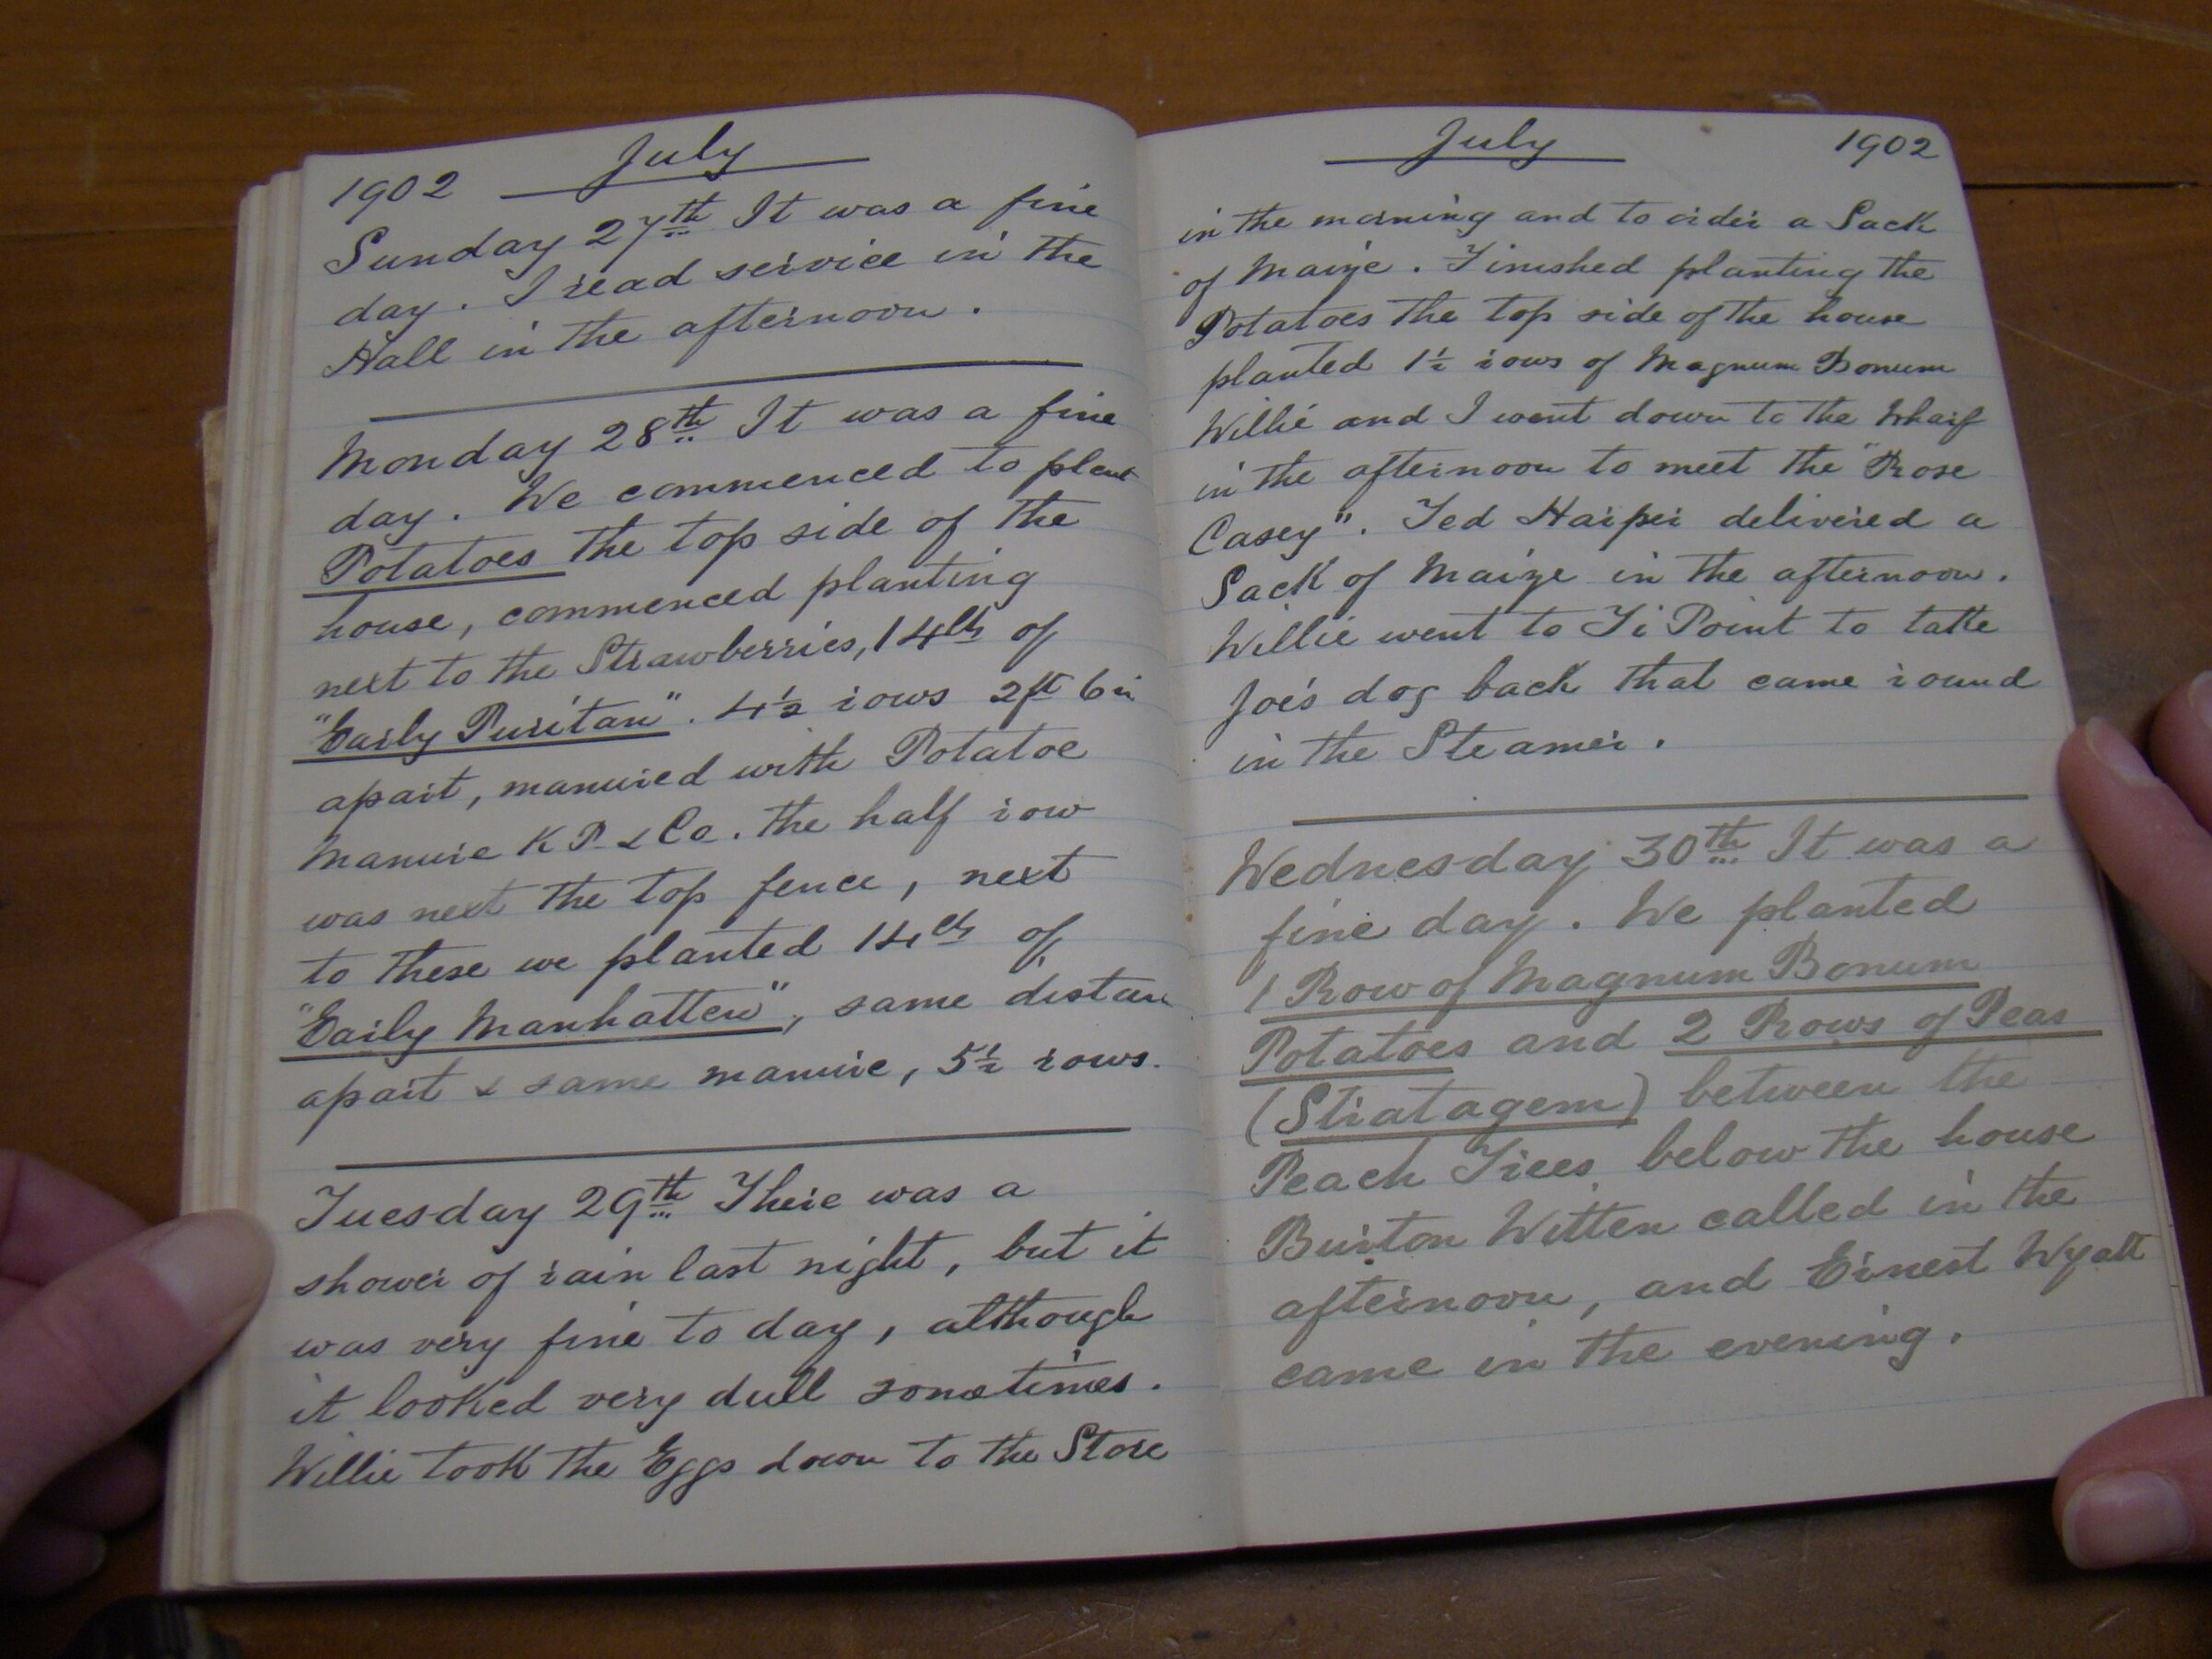 1902 July
Sunday 27th It was a fine
day. I read service in the
Hall in the afternoon.
Monday 28th It was a fine
day. We commenced to plant
Potatoes the top side of the
house, commenced planting
next to the Strawberries, 14lb of
"Early Puritan". 4½ rows 2ft 6in
apart, manured with Potatoe
Manure K P. & Co. the half row
was next the top fence, next
to these we planted 14lb of
"Early Manhatten", same distan
apart & same manure, 5½ rows.
Tuesday 29th There was a
shower of rain last night, but it
was very fine to day, although
it looked very dull sometimes.
Willie took the Eggs down to the Store
July 1902
in the morning and to order a Sack
of Maize. Finished planting the
Potatoes the top side of the house
planted 1½ rows of Magnum Bonum
Willie and I went down to the Wharf
in the afternoon to meet the "Rose
Casey". Ted Harper delivered a
Sack of Maize in the afternoon.
Willie went to Ti Point to take
Joe's dog back that came round
in the Steamer.
Wednesday 30th It was a
fine day. We planted
1 Row of Magnum Bonum
Potatoes and 2 Rows of Peas
(Stratagem) between the
Peach Trees below the house
Burton Witten called in the
afternoon, and Ernest Wyatt
came in the evening.